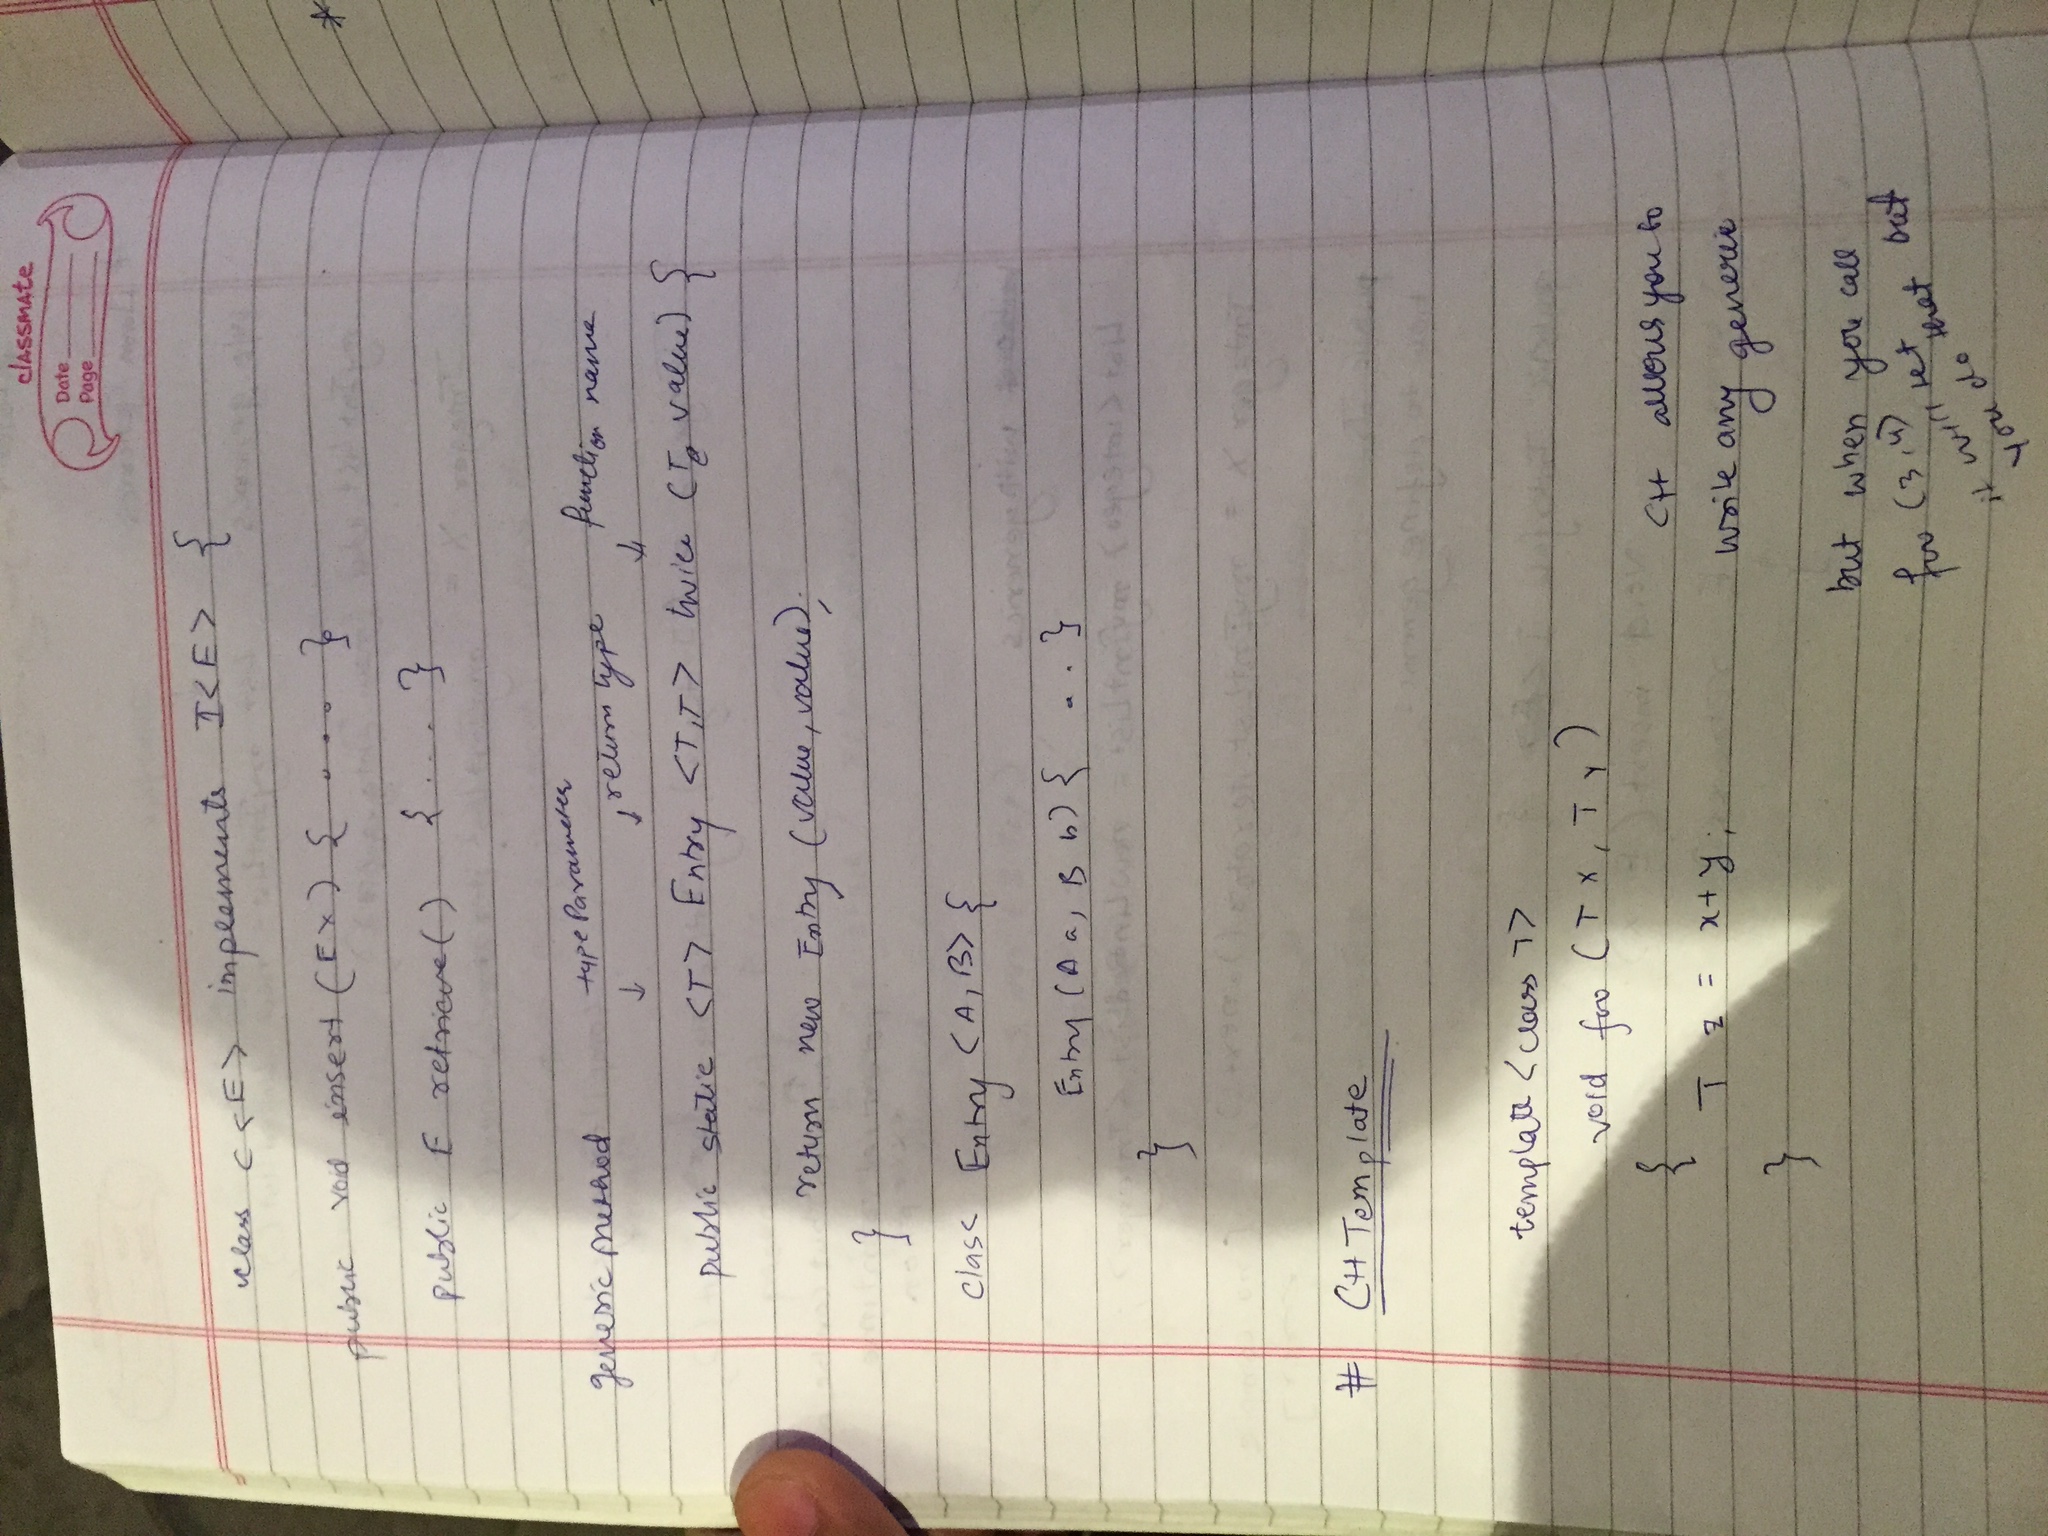 classmate
Date
Page
class C<E> implements I<E> {
public void insert(E x) { .... }
public E retrieve() { .... }
type Parameter function name
generic method return type
public static <T> Entry <T,T> twice (T value) {
return new Entry (value, value);
}
class Entry <A, B> {
Entry (A a, B b) { . . . }
}
# C++ Template
template <class T>
void foo (T x, T y)
{
T z = x+y;
}
C++ allows you to
write any generic
but when you call
foo (3,4) ret that but
it will
you do